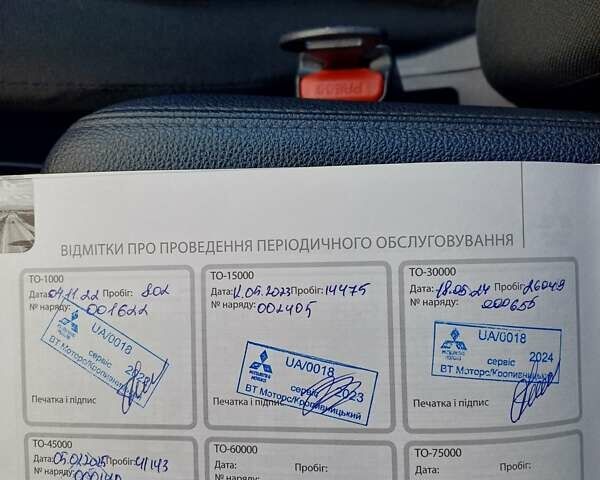 PRESS
ВІДМІТКИ ПРО ПРОВЕДЕННЯ ПЕРІОДИЧНОГО ОБСЛУГОВУВАННЯ
ТО-1000
Дата: 04.11.22 Пробіг: 802
№ наряду: 001622
UA/0018
сервіс
ВТ Моторс/Кропивницький
Печатка і підпис
ТО-15000
Дата: 05.2023 Пробіг: 14475
№ наряду: 002405
UA/0018
MITSUBISHI MOTORS
сервіс 2023
ВТ Моторс/Кропивницький
Печатка і підпис
ТО-30000
Дата: 18.06.24 Пробіг: 26049
№ наряду: 000655
UA/0018
MITSUBISHI MOTORS
сервіс 2024
ВТ Моторс/Кропивницький
Печатка і підпис
ТО-45000
Дата: Пробіг: 41143
№ наряду:
ТО-60000
Дата: Пробіг:
№ наряду:
ТО-75000
Дата: Пробіг:
№ наряду: